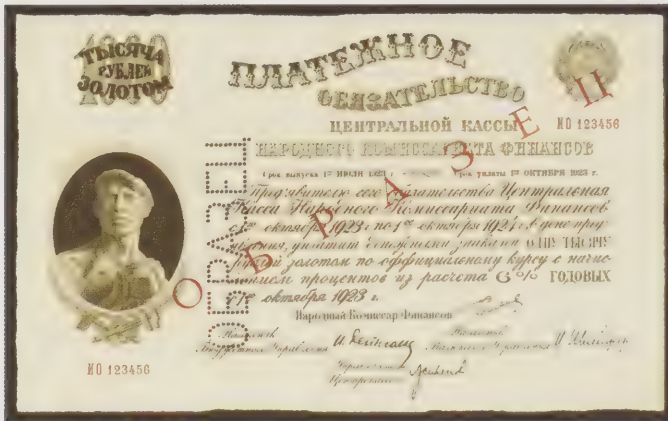 ТЫСЯЧА
РУБЛЕЙ
ЗОЛОТОМ
1000
ПЛАТЕЖНОЕ
ОБЯЗАТЕЛЬСТВО
ЦЕНТРАЛЬНОЙ КАССЫ
НАРОДНОГО КОМИССАРИАТА ФИНАНСОВ
И0 123456
Срок выпуска 1го ИЮЛЯ 1923 г. Срок уплаты 1го ОКТЯБРЯ 1923 г.
Предъявителю сего обязательства Центральная
Касса Народного Комиссариата Финансов
с 1го октября 1923 г. по 1ое октября 1924 г. в день
уплатит денежными знаками ОДНУ ТЫСЯЧУ
рублей золотом по оффициальному курсу с
процентов из расчета 6% ГОДОВЫХ
с 1го октября 1923 г.
Народный Комиссар Финансов
Начальник
Управления
Начальник
Управления
И0 123456
ОБРАЗЕЦ
ОБРАЗЕЦ